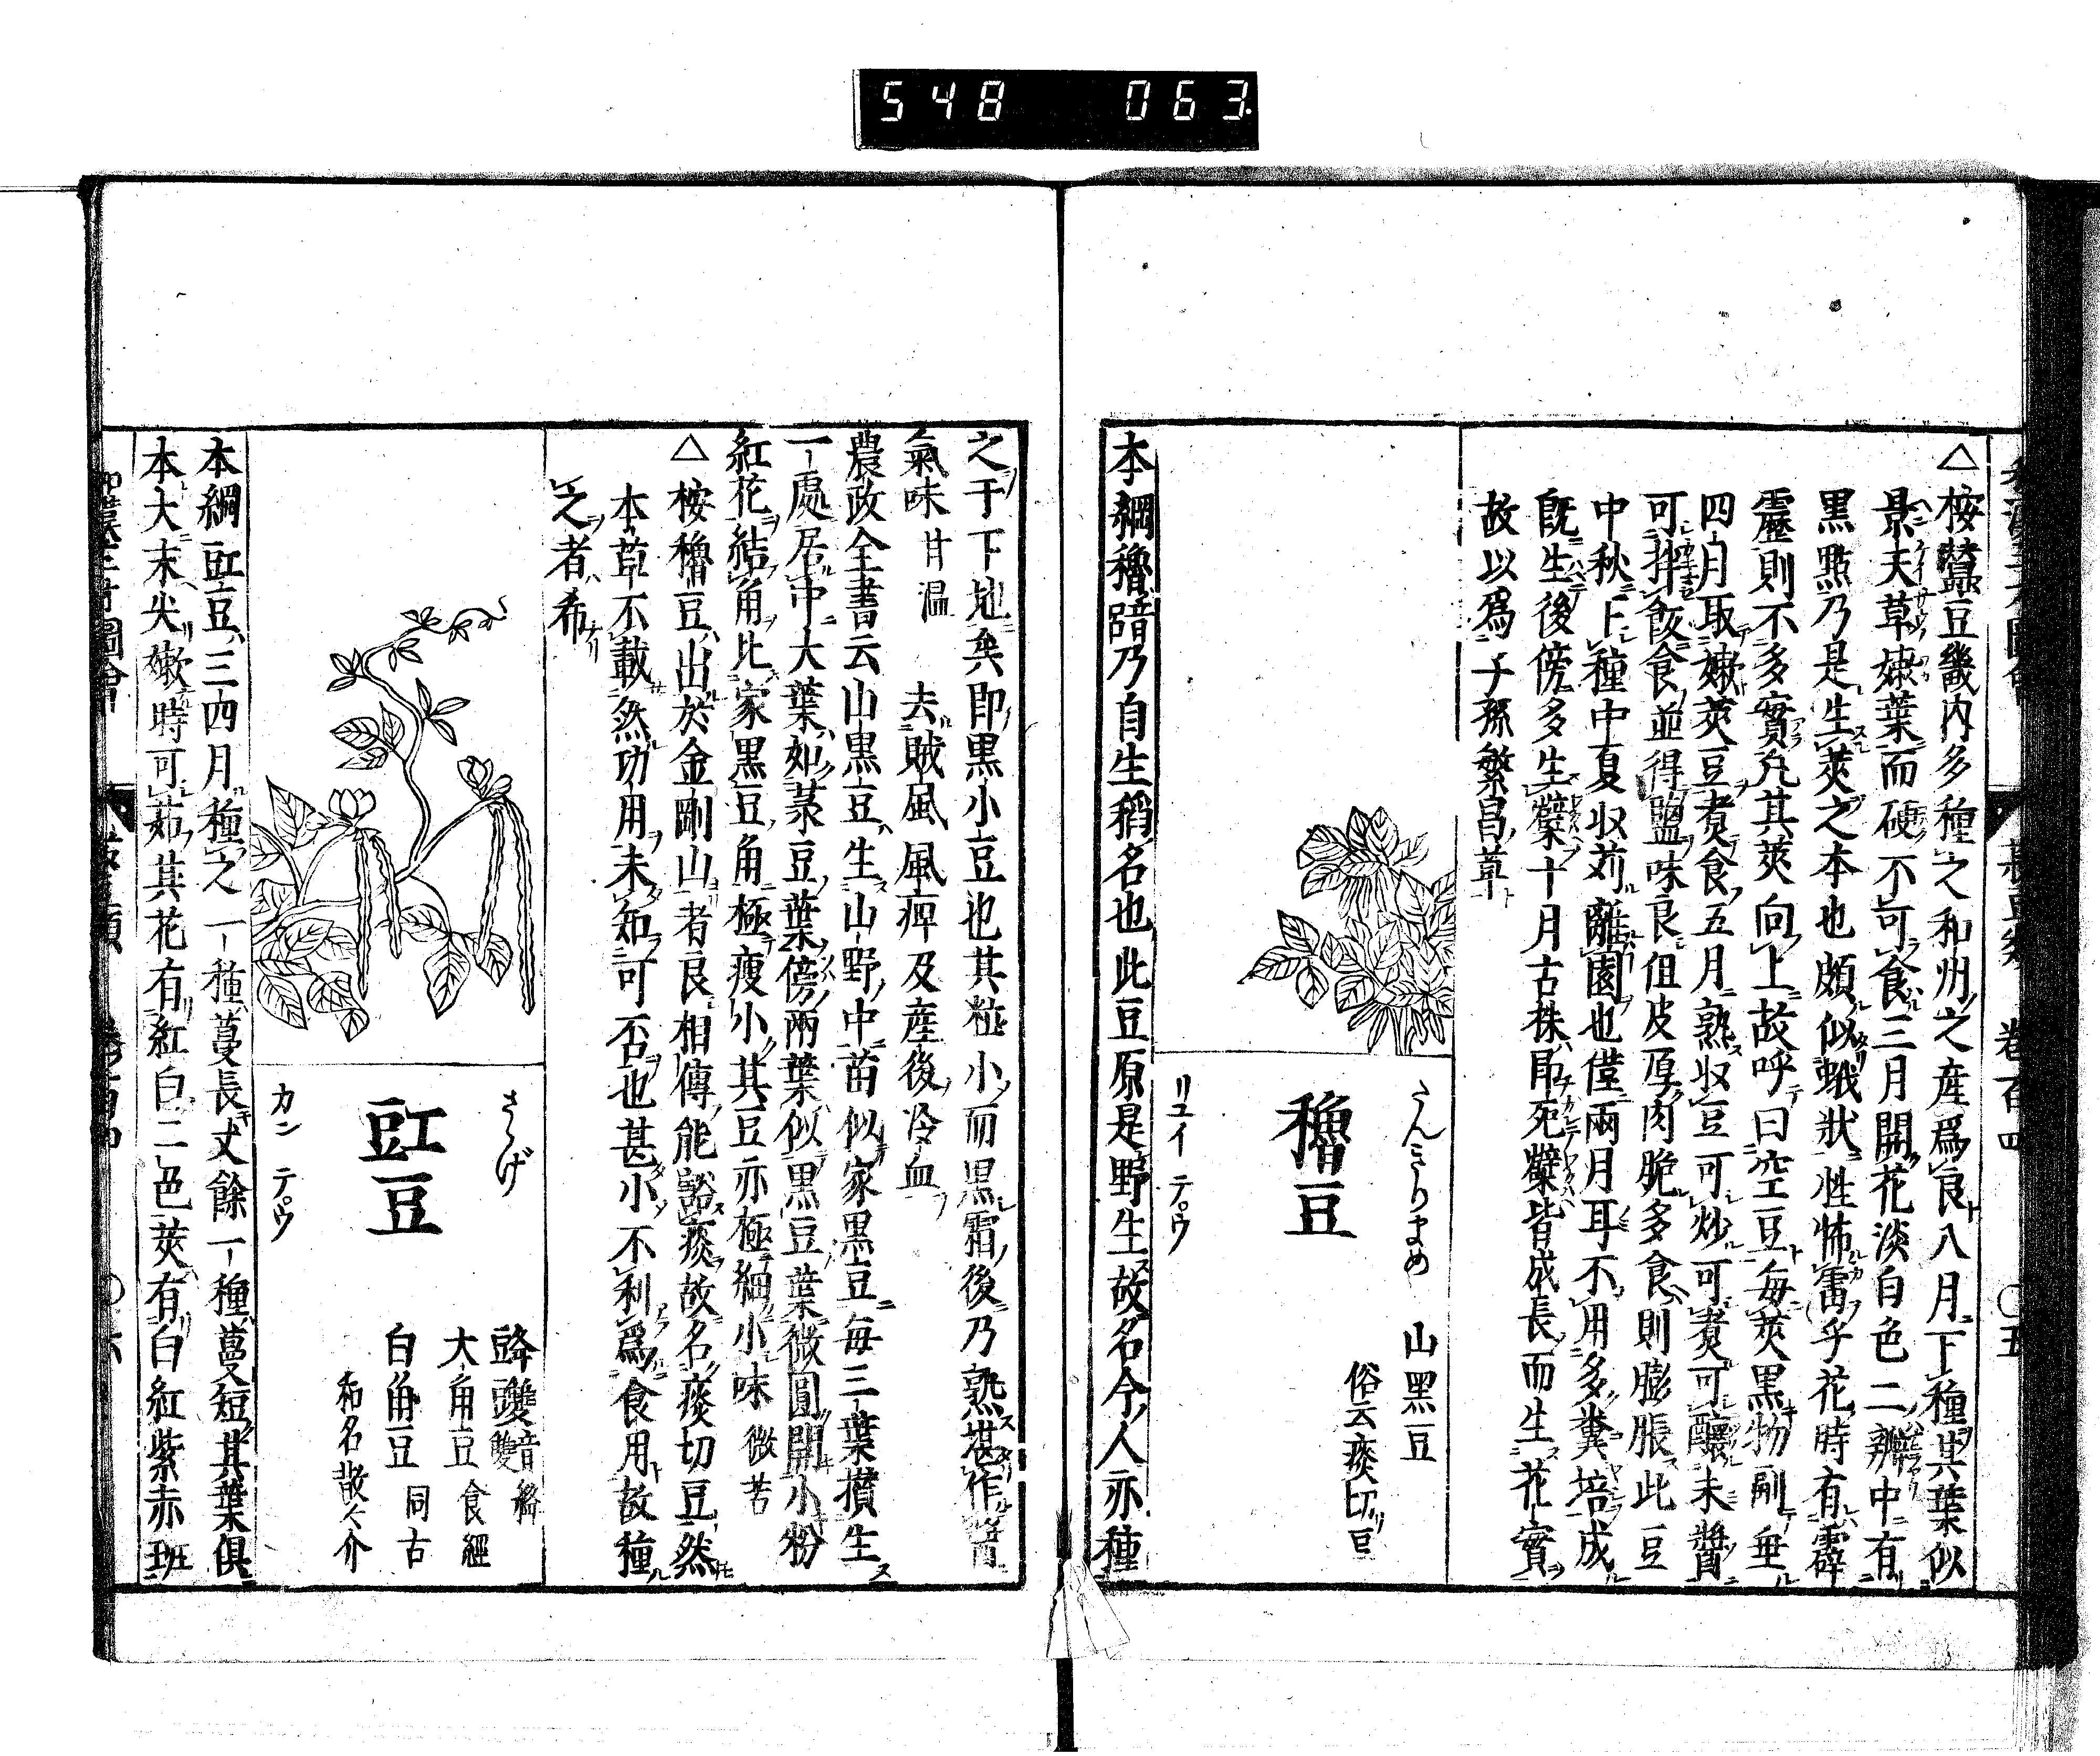 548 063
△桉蠶豆畿內多種之和州之産爲良八月下種其葉似
景天草嫩葉而硬不可食三月開花淡白色二瓣中有
黒點乃是生莢之本也頗似蛾狀性怖雷乎花時有霹
靂則不多實凡其莢向上故呼曰空豆毎莢黒物副垂
四月取嫩莢豆煑食五月熟收豆可炒可煑可釀末醬
可拌飯食並得鹽味良但皮厚肉脆多食則膨脹此豆
中秋下種中夏収苅離園也僅兩月耳不用多糞培成
既生後傍多生糵十月古株即死糵皆成長而生花實
故以爲子孫繁昌草
さんこくまめ
穭豆
リユイ テ゚ウ
山黑豆
俗云痰切豆
本綱穭音乃自生稻名也此豆原是野生故名今人亦種
之于下地矣即黒小豆也其粒小而黒霜後乃熟堪作醬
氣味甘温 去賊風風痺及産後冷血
農政全書云山黒豆生山野中苗似家黒豆毎三葉攅生
一處居中大葉如菉豆葉傍兩葉似黒豆葉微圓開小粉
紅花結角比家黒豆角極瘦小其豆亦極細小味微苦
△桉穭豆出於金剛山者良相傳能豁痰故名痰切豆然
本草不載然功用未知可否也甚小不利爲食用故種
之者希
さゝげ
豇豆
カン テ゚ウ
䜶䝄音絳
大角豆 食經
白角豆 同古
和名散々介
本綱豇豆三四月種之一種蔓長丈餘一種蔓短其葉俱
本大末尖嫩時可茹其花有紅白二色莢有白紅紫赤班